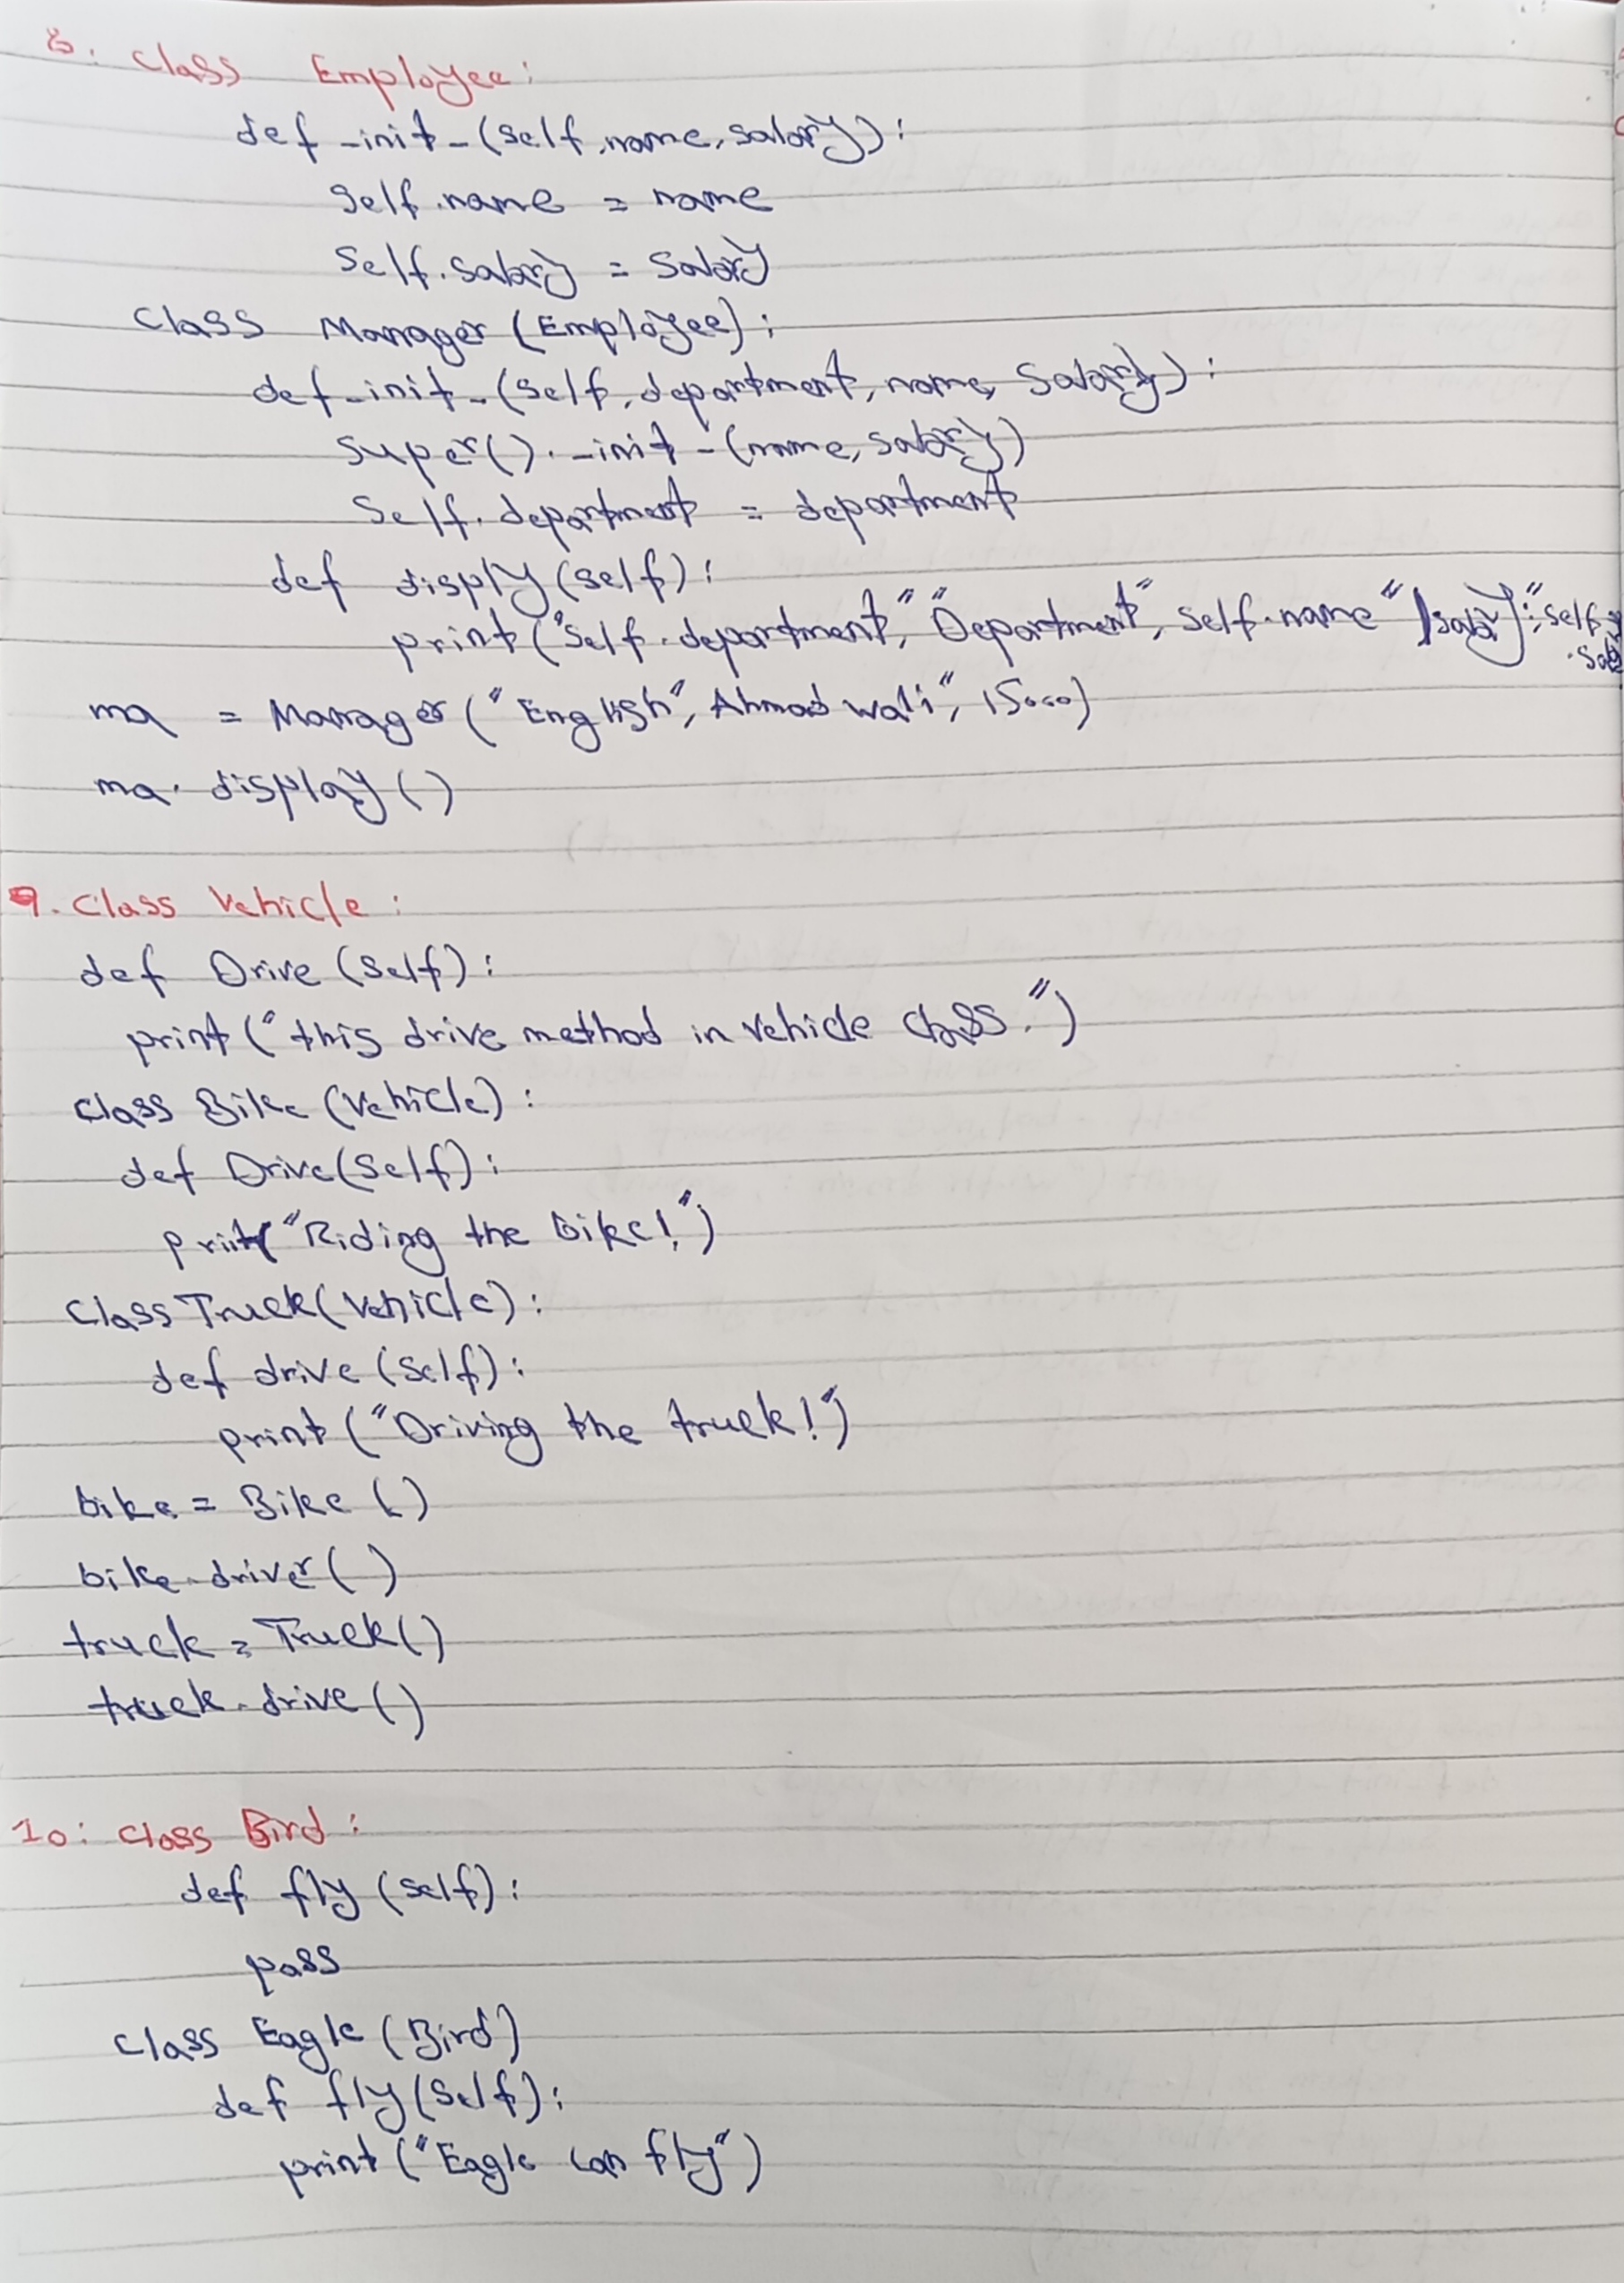 8. Class Employee:
def _init_(self, name, salary):
Self.name = name
Self.salary = Salary
Class Manager (Employee):
def _init_(self, department, name, Salary):
Super()._init_(name, salary)
Self.department = department
def disply(self):
print("Self.department," "Department", self.name" salary:", self.
ma = Manager("English", Ahmad wali", 15000)
ma.display()
9. Class Vehicle:
def Drive (Self):
print("this drive method in vehicle class.")
Class Bike (Vehicle):
def Drive(Self):
print("Riding the bike!")
Class Truck(Vehicle):
def drive (Self):
print("Driving the truck!")
bike = Bike ()
bike.driver()
truck = Truck()
truck.drive()
10: Class Bird:
def fly (self):
pass
Class Eagle (Bird)
def fly(Self):
print("Eagle can fly")